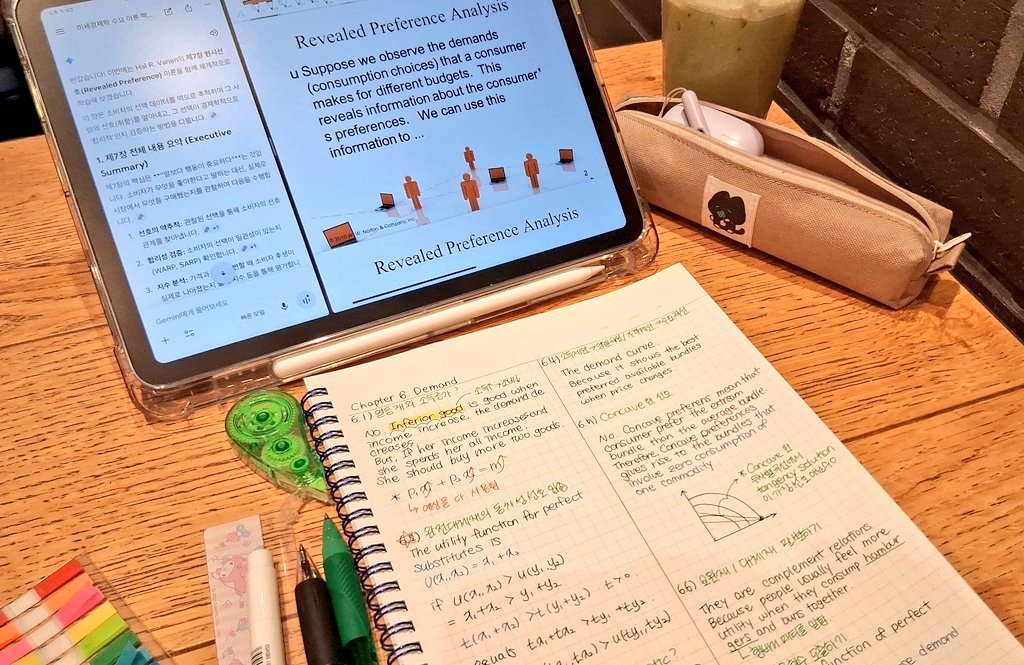 오후 5:40
미세경제학 수요 이론 핵...
반갑습니다! 이번에는 Hal R. Varian의 제7장 현시선
호(Revealed Preference) 이론을 함께 체계적으로
학습해 보겠습니다.
이 장은 소비자의 선택 데이터를 역으로 추적하여 그 사
람의 선호(취향)를 알아내고, 그 선택이 경제학적으로
합리적인지 검증하는 방법을 다룹니다.
1. 제7장 전체 내용 요약 (Executive
Summary)
제7장의 핵심은 **"말보다 행동이 중요하다"**는 것입
니다. 소비자가 무엇을 좋아한다고 말하는 대신, 실제로
시장에서 무엇을 구매했는지를 관찰하여 다음을 수행합
니다.
1. 선호의 역추적: 관찰된 선택을 통해 소비자의 선호
관계를 찾아냅니다. +1
2. 합리성 검증: 소비자의 선택이 일관성이 있는지
(WARP, SARP) 확인합니다. +1
3. 지수 분석: 가격과 변할 때 소비자 후생이
실제로 나아졌는지 지수 등을 통해 평가합니
Gemini에게 물어보세요
빠른 모델
Revealed Preference Analysis
u Suppose we observe the demands
(consumption choices) that a consumer
makes for different budgets. This
reveals information about the consumer'
s preferences. We can use this
information to ...
2
© 2010 W. W. Norton & Company, Inc.
Revealed Preference Analysis
Chapter 6 Demand
6.1)
No. Inferior good is good when
income increase, the demand de
creases.
But, If her income increases and
she spends her all income,
she should buy more two goods.
* P₁x₁ + P₂x₂ = m
↳ 예산을 다 사용함
The utility function for perfect
substitutes is
U(x₁, x₂) = x₁ + x₂
if u(x₁, x₂) > u(y₁, y₂)
= x₁ + x₂ > y₁ + y₂
t(x₁ + x₂) > t(y₁ + y₂) t > 0.
tx₁ + tx₂ > ty₁ + ty₂.
equals
6.4)
The demand curve.
Because it shows the best
preferred available bundles
when price changes
Concave
No. Concave preferens mean that
consumer prefer the extrem
bundle than the average bundle
Therefore concave preferences
gives rise to the bundles that
involve zero consumption of
one commodity
* Concave 한
tangency solution
They are complement relations
Because people usually feel more
utility when they consump hambur
gers and buns together.
tion of perfect
demand